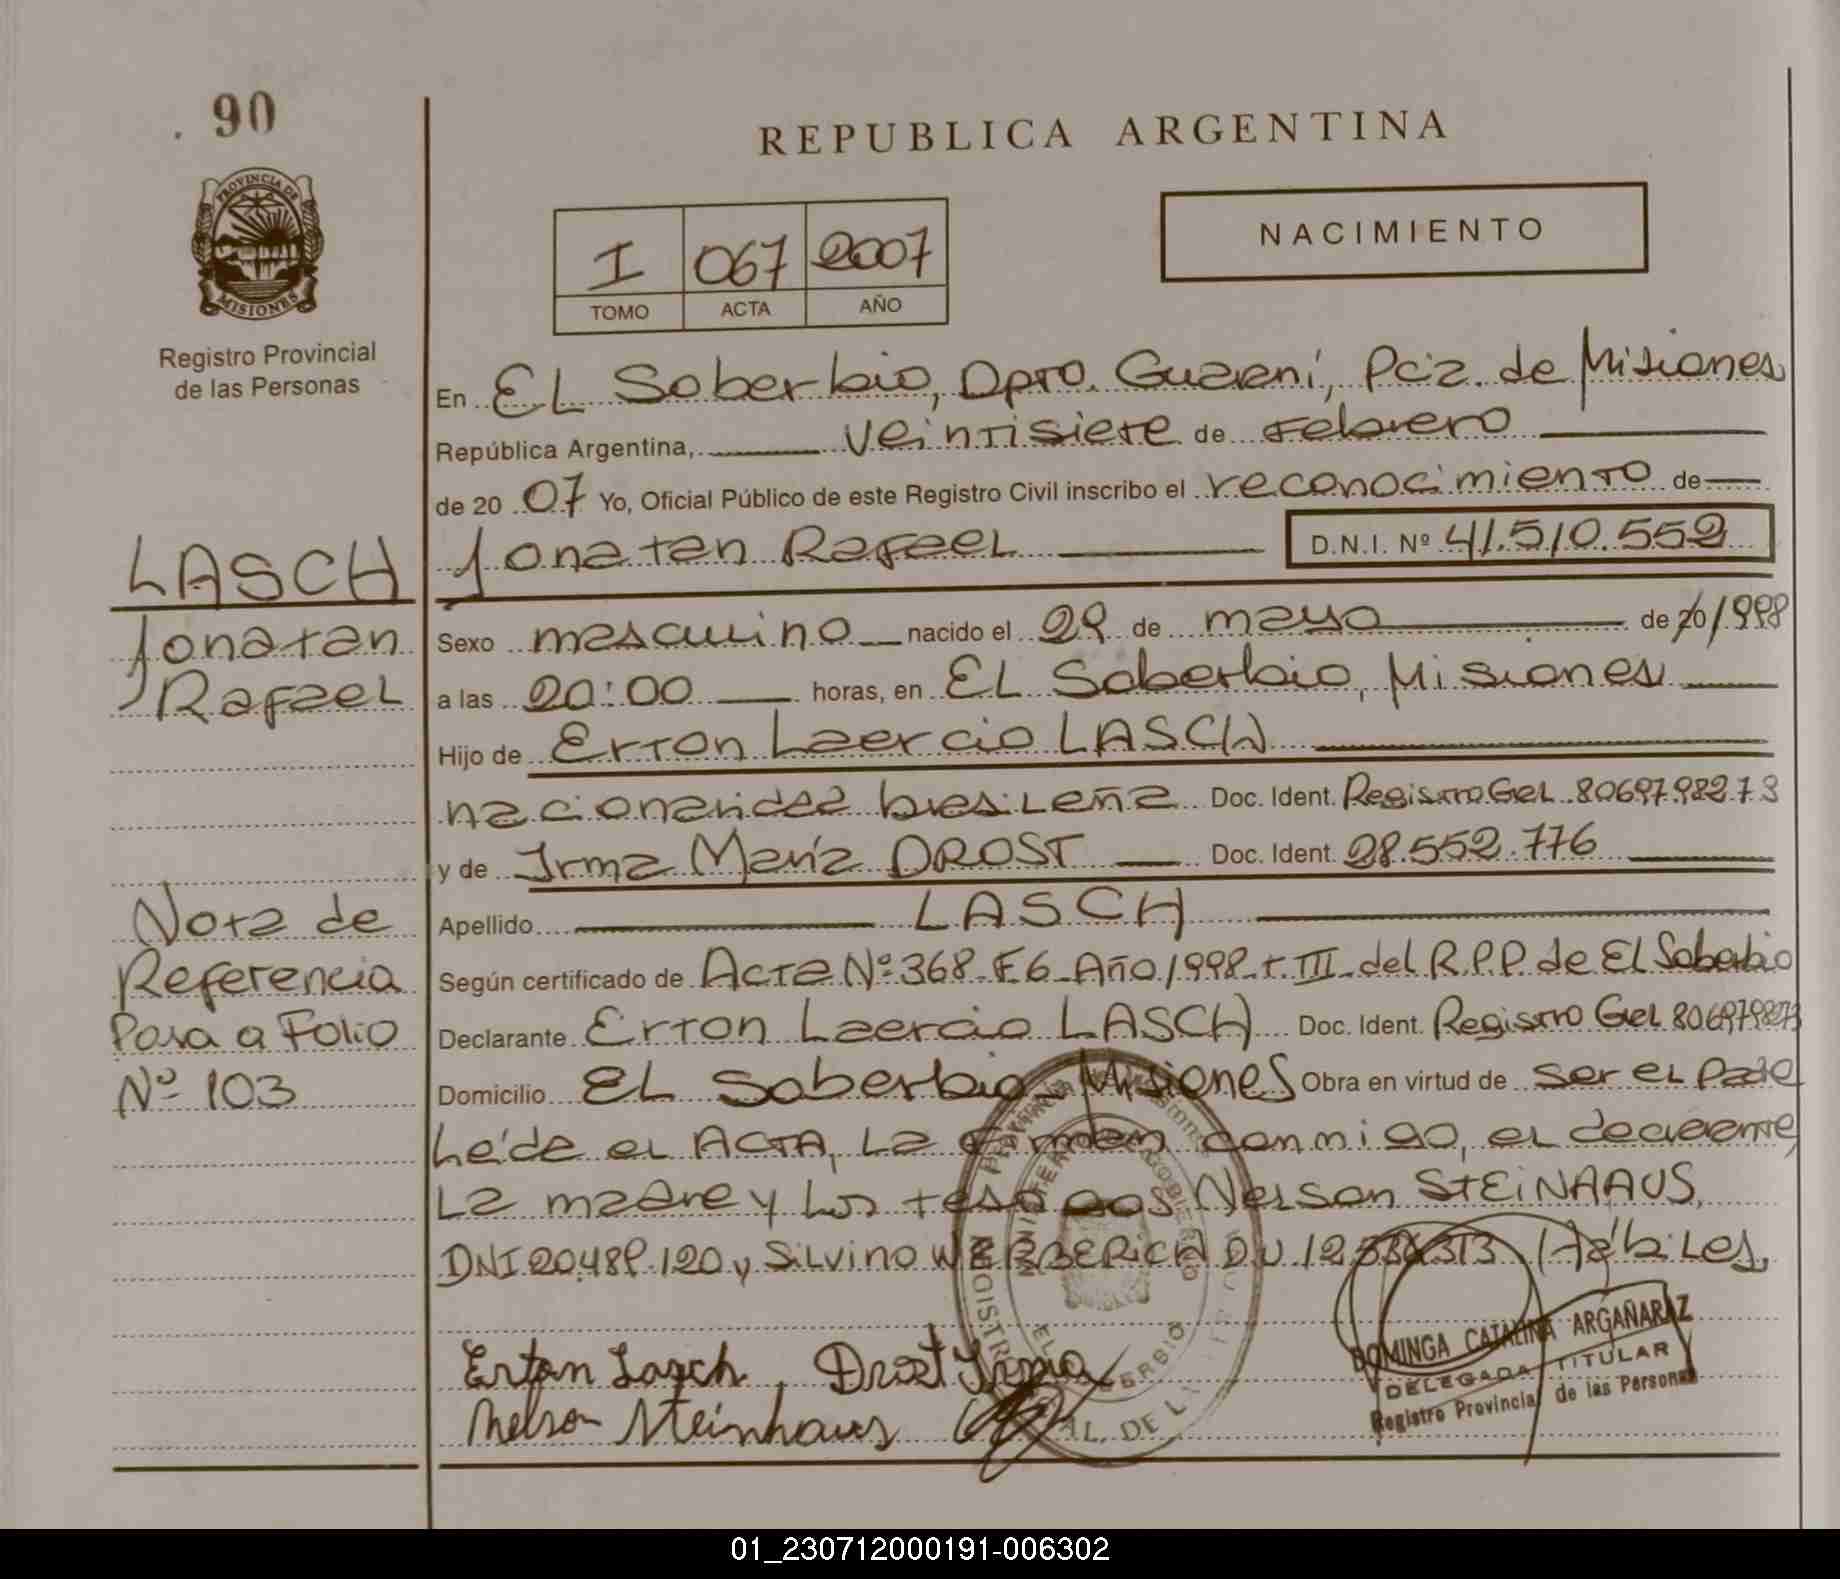 90
PROVINCIA DE
MISIONES
Registro Provincial
de las Personas
REPUBLICA ARGENTINA
I 067 2007
TOMO ACTA AÑO
NACIMIENTO
En EL Soberbio, Dpto. Guaraní, Pcia. de Misiones
República Argentina, veintisiete de Febrero
de 20 07 Yo, Oficial Público de este Registro Civil inscribo el reconocimiento de
Jonatan Rafael D.N.I. Nº 41.510.552
LASCH
Jonatan
Rafael
Sexo masculino nacido el 29 de mayo de 20/1998
a las 20:00 horas, en EL Soberbio, Misiones
Hijo de Erton Laercio LASCH
nacionalidad brasileña Doc. Ident. Registro Gel 8069798273
y de Irma María DROST Doc. Ident. 28.552.776
Apellido LASCH
Nota de
Referencia
Pasa a Folio
Nº 103
Según certificado de Acta Nº 368 F6 Año 1998 t III del R.P.P de El Soberbio
Declarante Erton Laercio LASCH Doc. Ident. Registro Gel 8069798273
Domicilio EL Soberbio Misiones Obra en virtud de ser el Padre
Leída el ACTA, La firman conmigo, el declarante,
La madre y los testigos Nelson STEiNAAUS,
DNI 20.489.120 y Silvino WERBERICH DU 12.536.313 Hábiles.
Erton Lasch, Drost Irma
Nelson Steinhaus
DOMINGA CATALINA ARGAÑARAZ
DELEGADA TITULAR
Registro Provincial de las Personas
01_230712000191-006302